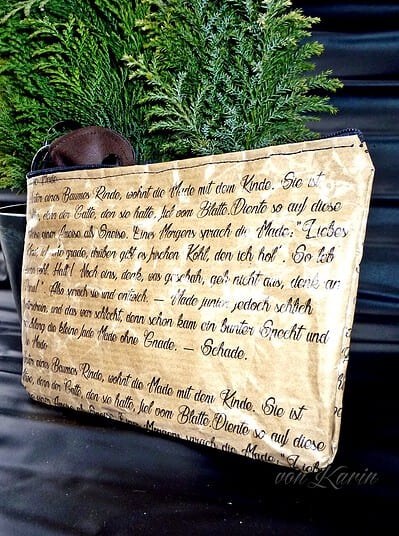 Hinter eines Baumes Rinde, wohnt die Made mit dem Kinde. Sie ist
denn der Gatte, den sie hatte, fiel vom Blatte. Diente so auf diese
Weise einer Ameise als Speise. Eines Morgens sprach die Made: "Liebes
ich sehe grade, drüben gibt es frischen Kohl, den ich hol'. So leb
wohl. Halt! Noch eins, denk, was geschah, geh nicht aus, denk an
Also sprach sie und entwich. – Made junior jedoch schlich
hinterdrein, und das war schlecht, denn schon kam ein bunter Specht und
die kleine fade Made ohne Gnade. – Schade.
eines Baumes Rinde, wohnt die Made mit dem Kinde. Sie ist
denn der Gatte, den sie hatte, fiel vom Blatte. Diente so auf diese
als Speise. Eines Morgens sprach die Made: "Liebes
von Karin